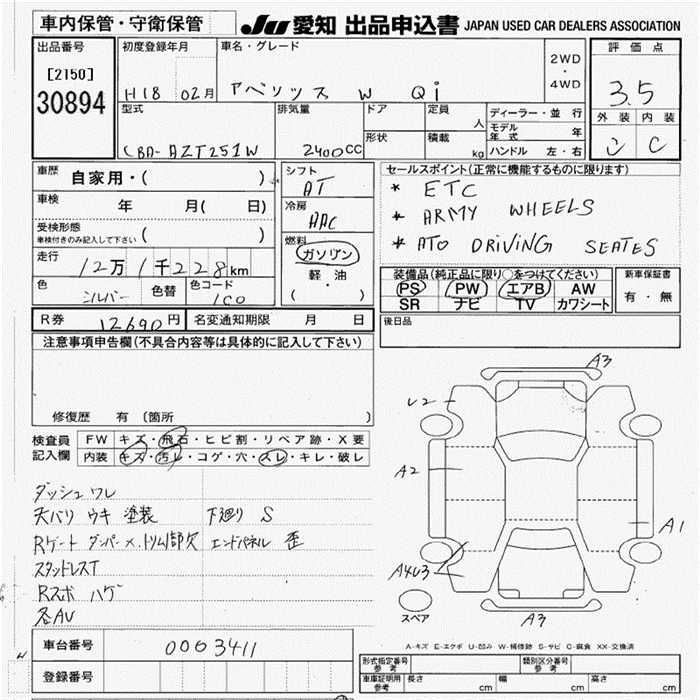 車内保管・守衛保管
JU 愛知 出品申込書 JAPAN USED CAR DEALERS ASSOCIATION
出品番号
[2150]
30894
初度登録年月
H18 02月
車名・グレード
アベンシス W Qi
2WD
・
4WD
評価点
3.5
外装 内装
C
型式
CBA-AZT251W
排気量
2400CC
ドア
形状
定員
人
積載
kg
ディーラー・並行
モデル年式 年
ハンドル 左・右
車歴
自家用・( )
車検
年 月( 日)
受検形態
車検付きのみ記入して下さい ( )
走行
12万1千228km
色
シルバー
色替
色コード
1C0
シフト
AT
冷房
AAC
燃料
ガソリン
軽・油
( )
セールスポイント(正常に機能するものに限ります)
* ETC
* ARMY WHEELS
* ATO DRIVING SEATES
装備品(純正品に限り○をつけてください)
PS PW エアB AW
SR ナビ TV カワシート
新車保証書
有・無
R券 12690円 名変通知期限 月 日
後日品
注意事項申告欄(不具合内容等は具体的に記入して下さい)
修復歴 有 (箇所 )
検査員記入欄
FW キズ・飛石・ヒビ割・リペア跡・X要
内装 キズ・汚レ・コゲ・穴・スレ・キレ・破レ
ダッシュ ワレ
天バリ ウキ 塗装 下廻り S
Rゲート ダンパー メ.トリム1部欠 エンドパネル 歪
スタットレスT
Rスポ ハゲ
各AU
A3
U2
A2
A1
A4U3
A3
スペア
A-キズ E-エクボ U-凹み W-補修跡 S-サビ C-腐食 XX-交換済
車台番号
0003411
登録番号
形式指定番号
参考
類別区分番号
参考
車庫証明用
参考
長さ cm 幅 cm 高さ cm